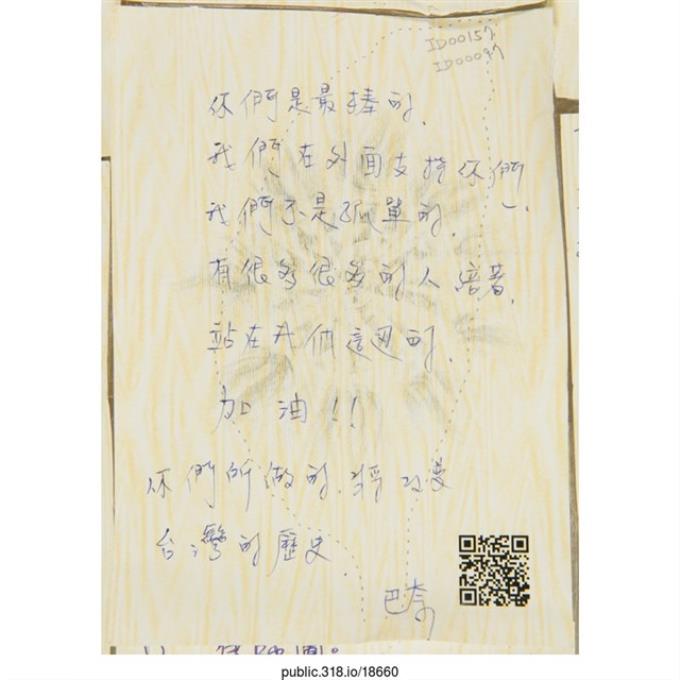 ID00157
ID00097
你們是最棒的.
我們在外面支持你們
我們不是孤單的.
有很多很多的人陪著,
站在我們這邊的.
加油!!
你們所做的.將改變
台灣的歷史
巴奈
public.318.io/18660